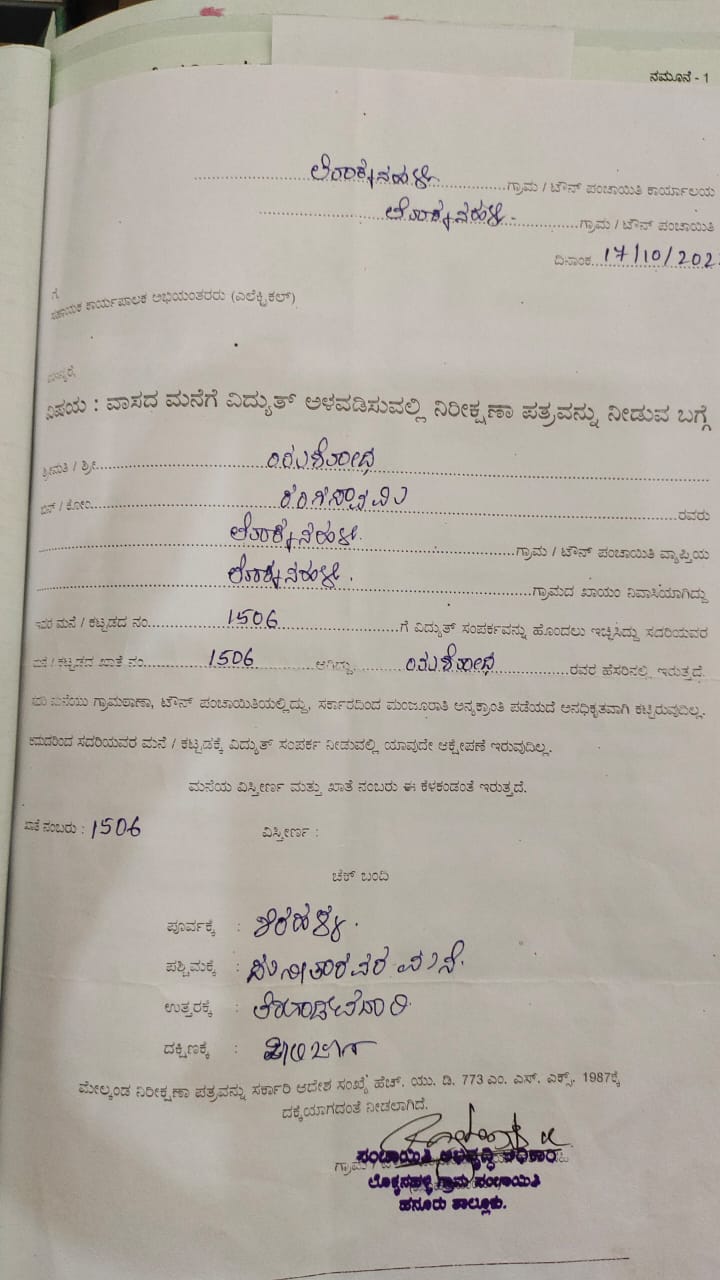 ನಮೂನೆ - 1
ಲೊಕ್ಕನಹಳ್ಳಿ ಗ್ರಾಮ / ಟೌನ್ ಪಂಚಾಯಿತಿ ಕಾರ್ಯಾಲಯ
ಲೊಕ್ಕನಹಳ್ಳಿ ಗ್ರಾಮ / ಟೌನ್ ಪಂಚಾಯಿತಿ
ದಿನಾಂಕ 17/10/202
ಗೆ
ಸಹಾಯಕ ಕಾರ್ಯಪಾಲಕ ಅಭಿಯಂತರರು (ಎಲೆಕ್ಟ್ರಿಕಲ್)
ಮಾನ್ಯರೆ,
ವಿಷಯ : ವಾಸದ ಮನೆಗೆ ವಿದ್ಯುತ್ ಅಳವಡಿಸುವಲ್ಲಿ ನಿರೀಕ್ಷಣಾ ಪತ್ರವನ್ನು ನೀಡುವ ಬಗ್ಗೆ
ಶ್ರೀಮತಿ / ಶ್ರೀ
ಬಿನ್ / ಕೋಂ ರಂಗಸ್ವಾಮಿ ರವರು
ಲೊಕ್ಕನಹಳ್ಳಿ ಗ್ರಾಮ / ಟೌನ್ ಪಂಚಾಯಿತಿ ವ್ಯಾಪ್ತಿಯ
ಲೊಕ್ಕನಹಳ್ಳಿ ಗ್ರಾಮದ ಖಾಯಂ ನಿವಾಸಿಯಾಗಿದ್ದು
ಇವರ ಮನೆ / ಕಟ್ಟಡದ ನಂ 1506 ಗೆ ವಿದ್ಯುತ್ ಸಂಪರ್ಕವನ್ನು ಹೊಂದಲು ಇಚ್ಛಿಸಿದ್ದು ಸದರಿಯವರ
ಮನೆ / ಕಟ್ಟಡದ ಖಾತೆ ನಂ. 1506 ಆಗಿದ್ದು, ರವರ ಹೆಸರಿನಲ್ಲಿ ಇರುತ್ತದೆ.
ಸದರಿ ಮನೆಯು ಗ್ರಾಮಠಾಣಾ, ಟೌನ್ ಪಂಚಾಯಿತಿಯಲ್ಲಿದ್ದು, ಸರ್ಕಾರದಿಂದ ಮಂಜೂರಾತಿ ಅನ್ಯಕ್ರಾಂತಿ ಪಡೆಯದೆ ಅನಧಿಕೃತವಾಗಿ ಕಟ್ಟಿರುವುದಿಲ್ಲ.
ಆದುದರಿಂದ ಸದರಿಯವರ ಮನೆ / ಕಟ್ಟಡಕ್ಕೆ ವಿದ್ಯುತ್ ಸಂಪರ್ಕ ನೀಡುವಲ್ಲಿ ಯಾವುದೇ ಆಕ್ಷೇಪಣೆ ಇರುವುದಿಲ್ಲ.
ಮನೆಯ ವಿಸ್ತೀರ್ಣ ಮತ್ತು ಖಾತೆ ನಂಬರು ಈ ಕೆಳಕಂಡಂತೆ ಇರುತ್ತದೆ.
ಖಾತೆ ನಂಬರು : 1506 ವಿಸ್ತೀರ್ಣ :
ಚೆಕ್ ಬಂದಿ
ಪೂರ್ವಕ್ಕೆ :
ಪಶ್ಚಿಮಕ್ಕೆ : ಮನೆ.
ಉತ್ತರಕ್ಕೆ :
ದಕ್ಷಿಣಕ್ಕೆ :
ಮೇಲ್ಕಂಡ ನಿರೀಕ್ಷಣಾ ಪತ್ರವನ್ನು ಸರ್ಕಾರಿ ಆದೇಶ ಸಂಖ್ಯೆ ಹೆಚ್. ಯು. ಡಿ. 773 ಎಂ. ಎಸ್. ಎಕ್ಸ್. 1987ಕ್ಕೆ
ದಕ್ಕೆಯಾಗದಂತೆ ನೀಡಲಾಗಿದೆ.
ಪಂಚಾಯಿತಿ ಅಭಿವೃದ್ಧಿ ಅಧಿಕಾರಿ
ಲೊಕ್ಕನಹಳ್ಳಿ ಗ್ರಾಮ ಪಂಚಾಯಿತಿ
ಹನೂರು ತಾಲ್ಲೂಕು.